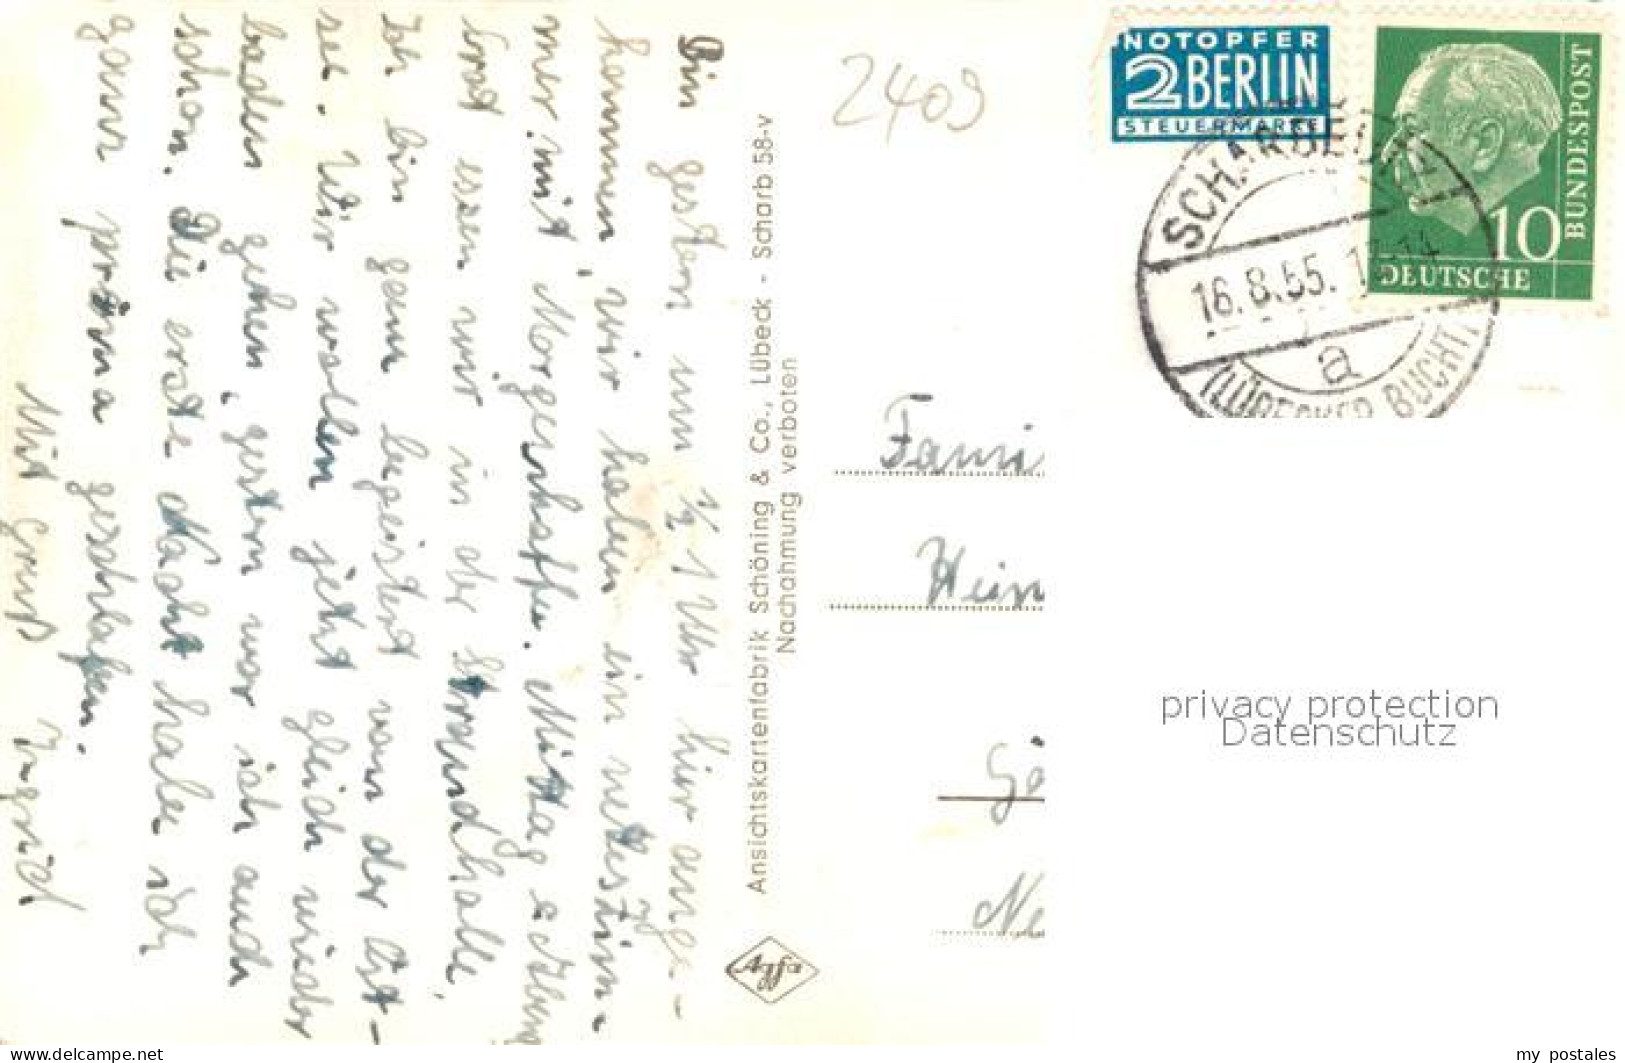 Bin gestern um ½ 1 Uhr hier ange-
kommen, wir haben ein nettes Zim-
mer mit Morgenkaffee. Mittag & Abend
brot essen wir in der Strandhalle,
Ich bin ganz begeistert von der Ost-
see. Wir wollen jetzt gleich wieder
baden gehen, gestern war ich auch
schon. Die erste Nacht habe ich
ganz prima geschlafen.
Mit Gruß Ingrid
Ansichtskartenfabrik Schöning & Co., Lübeck - Scharb 58-v
Nachahmung verboten
Agfa
2409
NOTOPFER
2 BERLIN
STEUERMARKE
10
DEUTSCHE
BUNDESPOST
SCHARBEUTZ
16.8.55.
a
(LÜBECKER BUCHT)
Fami
Hein
Gö
Ne
privacy protection
Datenschutz
delcampe.net
my_postales